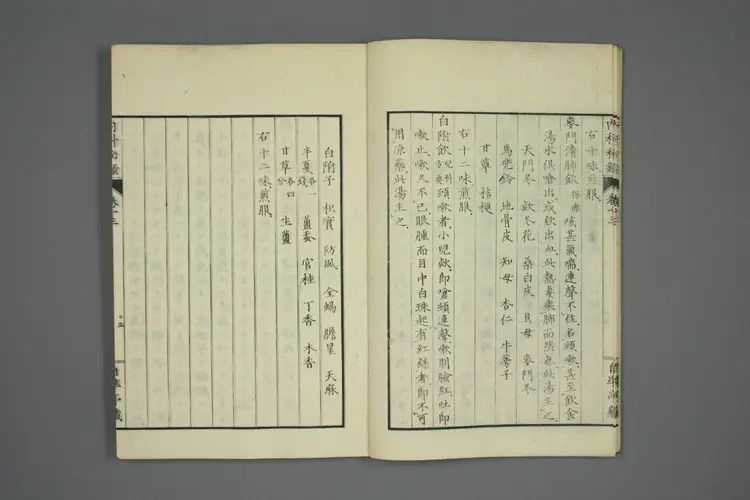 右十味煎服
麥門清肺飲 保赤 咳甚氣喘連聲不住名頓嗽甚至飲食
湯水俱嗆出或欬出血此熱毒乘肺而然此湯主之
天門冬 欵冬花 桑白皮 貝母 麥門冬
馬兜鈴 地骨皮 知母 杏仁 牛蒡子
甘草 桔梗
右十二味煎服
白附飲 兒科方要 頓嗽者小兒欬即嗆頓連聲嗽則臉紅吐即
嗽止嗽久不已眼腫而目中白珠起有紅絲者即不可
用涼藥此湯主之
白附子 枳實 防風 全蝎 膽星 天麻
半夏 各一錢 薑蚕 官桂 丁香 木香
甘草 各四分 生薑
右十二味煎服
卷十三